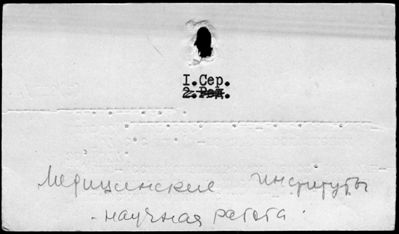 I.Сер.
2.Ред.
Медицинские институты
- научная работа.